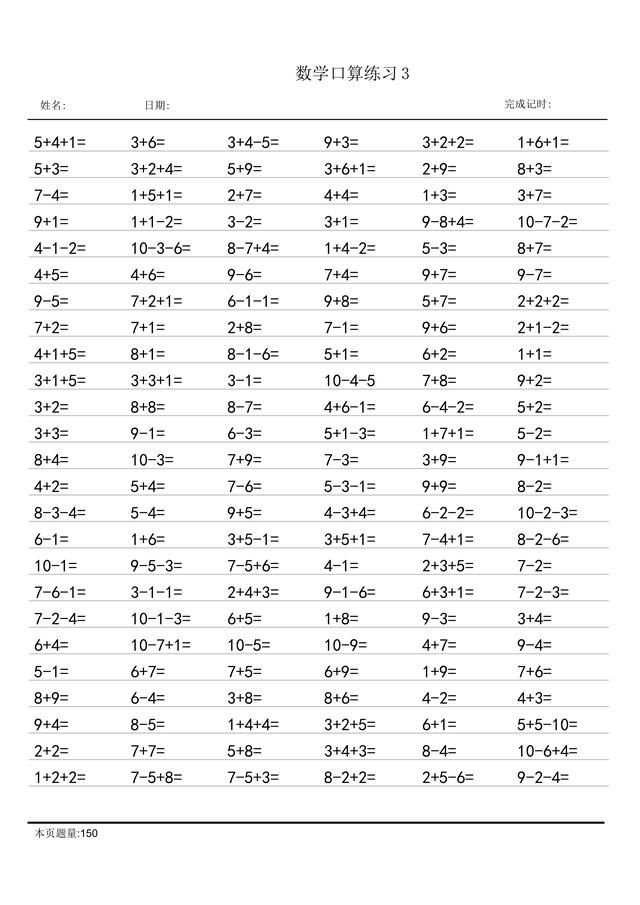 数学口算练习3
姓名: 日期: 完成记时:
5+4+1= 3+6= 3+4-5= 9+3= 3+2+2= 1+6+1=
5+3= 3+2+4= 5+9= 3+6+1= 2+9= 8+3=
7-4= 1+5+1= 2+7= 4+4= 1+3= 3+7=
9+1= 1+1-2= 3-2= 3+1= 9-8+4= 10-7-2=
4-1-2= 10-3-6= 8-7+4= 1+4-2= 5-3= 8+7=
4+5= 4+6= 9-6= 7+4= 9+7= 9-7=
9-5= 7+2+1= 6-1-1= 9+8= 5+7= 2+2+2=
7+2= 7+1= 2+8= 7-1= 9+6= 2+1-2=
4+1+5= 8+1= 8-1-6= 5+1= 6+2= 1+1=
3+1+5= 3+3+1= 3-1= 10-4-5 7+8= 9+2=
3+2= 8+8= 8-7= 4+6-1= 6-4-2= 5+2=
3+3= 9-1= 6-3= 5+1-3= 1+7+1= 5-2=
8+4= 10-3= 7+9= 7-3= 3+9= 9-1+1=
4+2= 5+4= 7-6= 5-3-1= 9+9= 8-2=
8-3-4= 5-4= 9+5= 4-3+4= 6-2-2= 10-2-3=
6-1= 1+6= 3+5-1= 3+5+1= 7-4+1= 8-2-6=
10-1= 9-5-3= 7-5+6= 4-1= 2+3+5= 7-2=
7-6-1= 3-1-1= 2+4+3= 9-1-6= 6+3+1= 7-2-3=
7-2-4= 10-1-3= 6+5= 1+8= 9-3= 3+4=
6+4= 10-7+1= 10-5= 10-9= 4+7= 9-4=
5-1= 6+7= 7+5= 6+9= 1+9= 7+6=
8+9= 6-4= 3+8= 8+6= 4-2= 4+3=
9+4= 8-5= 1+4+4= 3+2+5= 6+1= 5+5-10=
2+2= 7+7= 5+8= 3+4+3= 8-4= 10-6+4=
1+2+2= 7-5+8= 7-5+3= 8-2+2= 2+5-6= 9-2-4=
本页题量:150